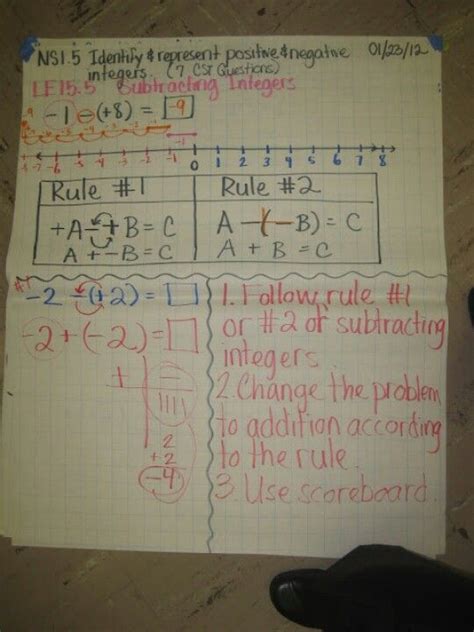 NS1.5 Identify & represent positive & negative 01/23/12
integers. (7 CST Questions)
LF15.5 Subtracting Integers
-1 -(+8) = -9
-9 -1
-8 -7 -6 -5 -4 -3 -2 -1 0 1 2 3 4 5 6 7 8
Rule #1
+A - +B = C
A + -B = C
Rule #2
A -(-B) = C
A + B = C
#1
-2 -(+2) =
-2 + (-2) =
+ -
||||
2
+2
-4
1. Follow rule #1
or #2 of subtracting
integers.
2. Change the problem
to addition according
to the rule.
3. Use scoreboard.